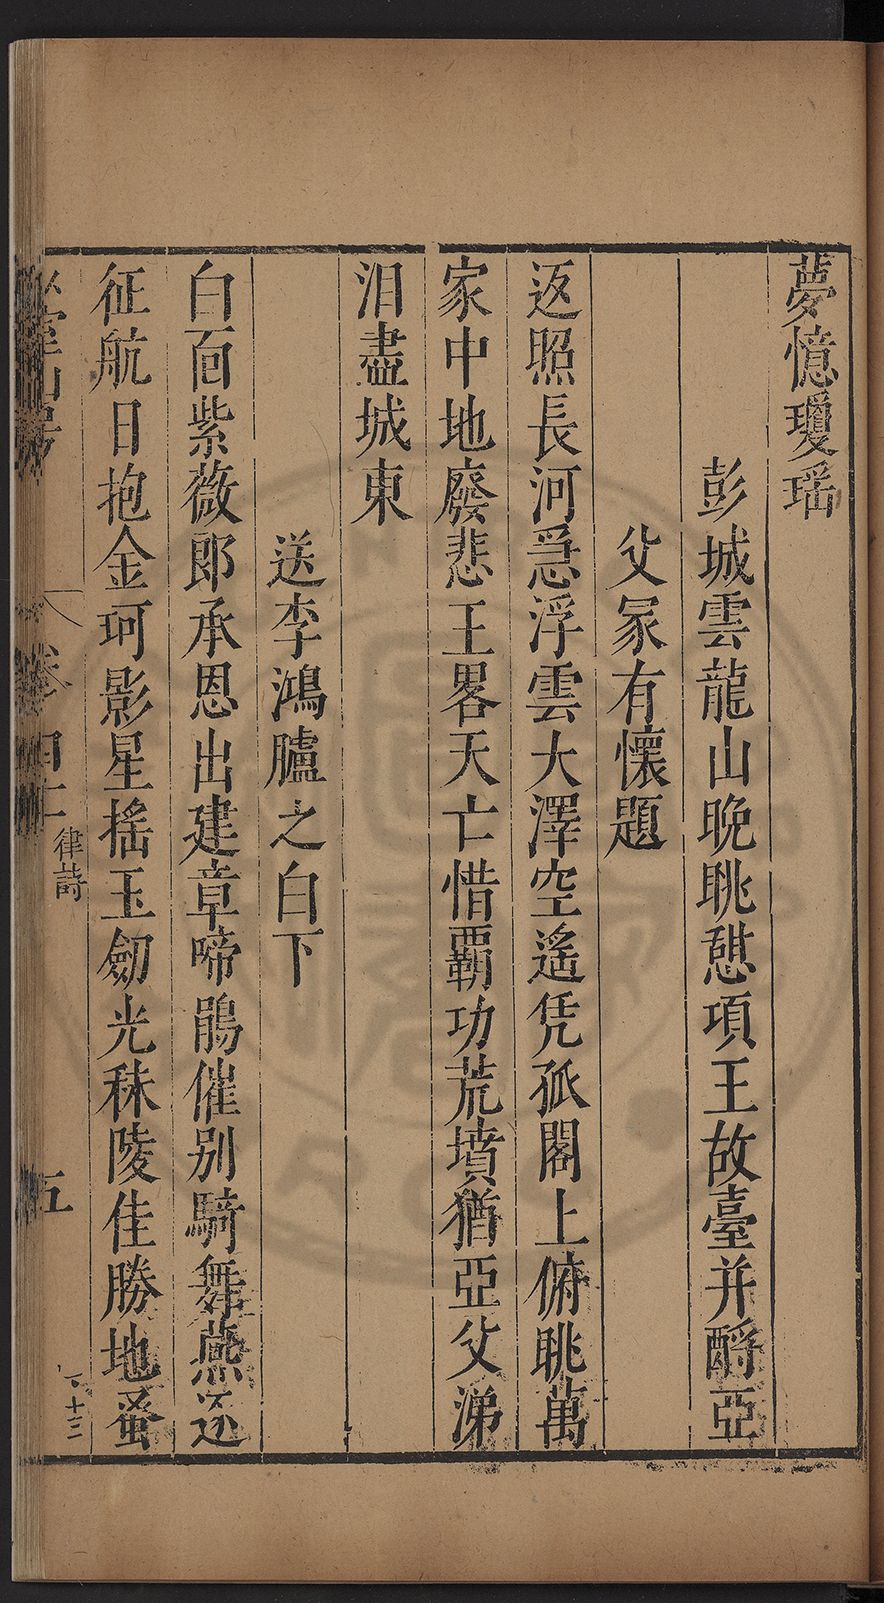 夢憶瓊瑶
彭城雲龍山晚眺憇項王故臺并酹亞
父冡有懷題
返照長河急浮雲大澤空遙凭孤閣上俯眺萬
家中地廢悲王畧天亡惜覇功荒墳猶亞父涕
泪盡城東
送李鴻臚之白下
白面紫薇郎承恩出建章啼鵑催别騎舞燕送
征航日抱金珂影星搖玉劒光秣陵佳勝地蚤
卷四十 律詩 五